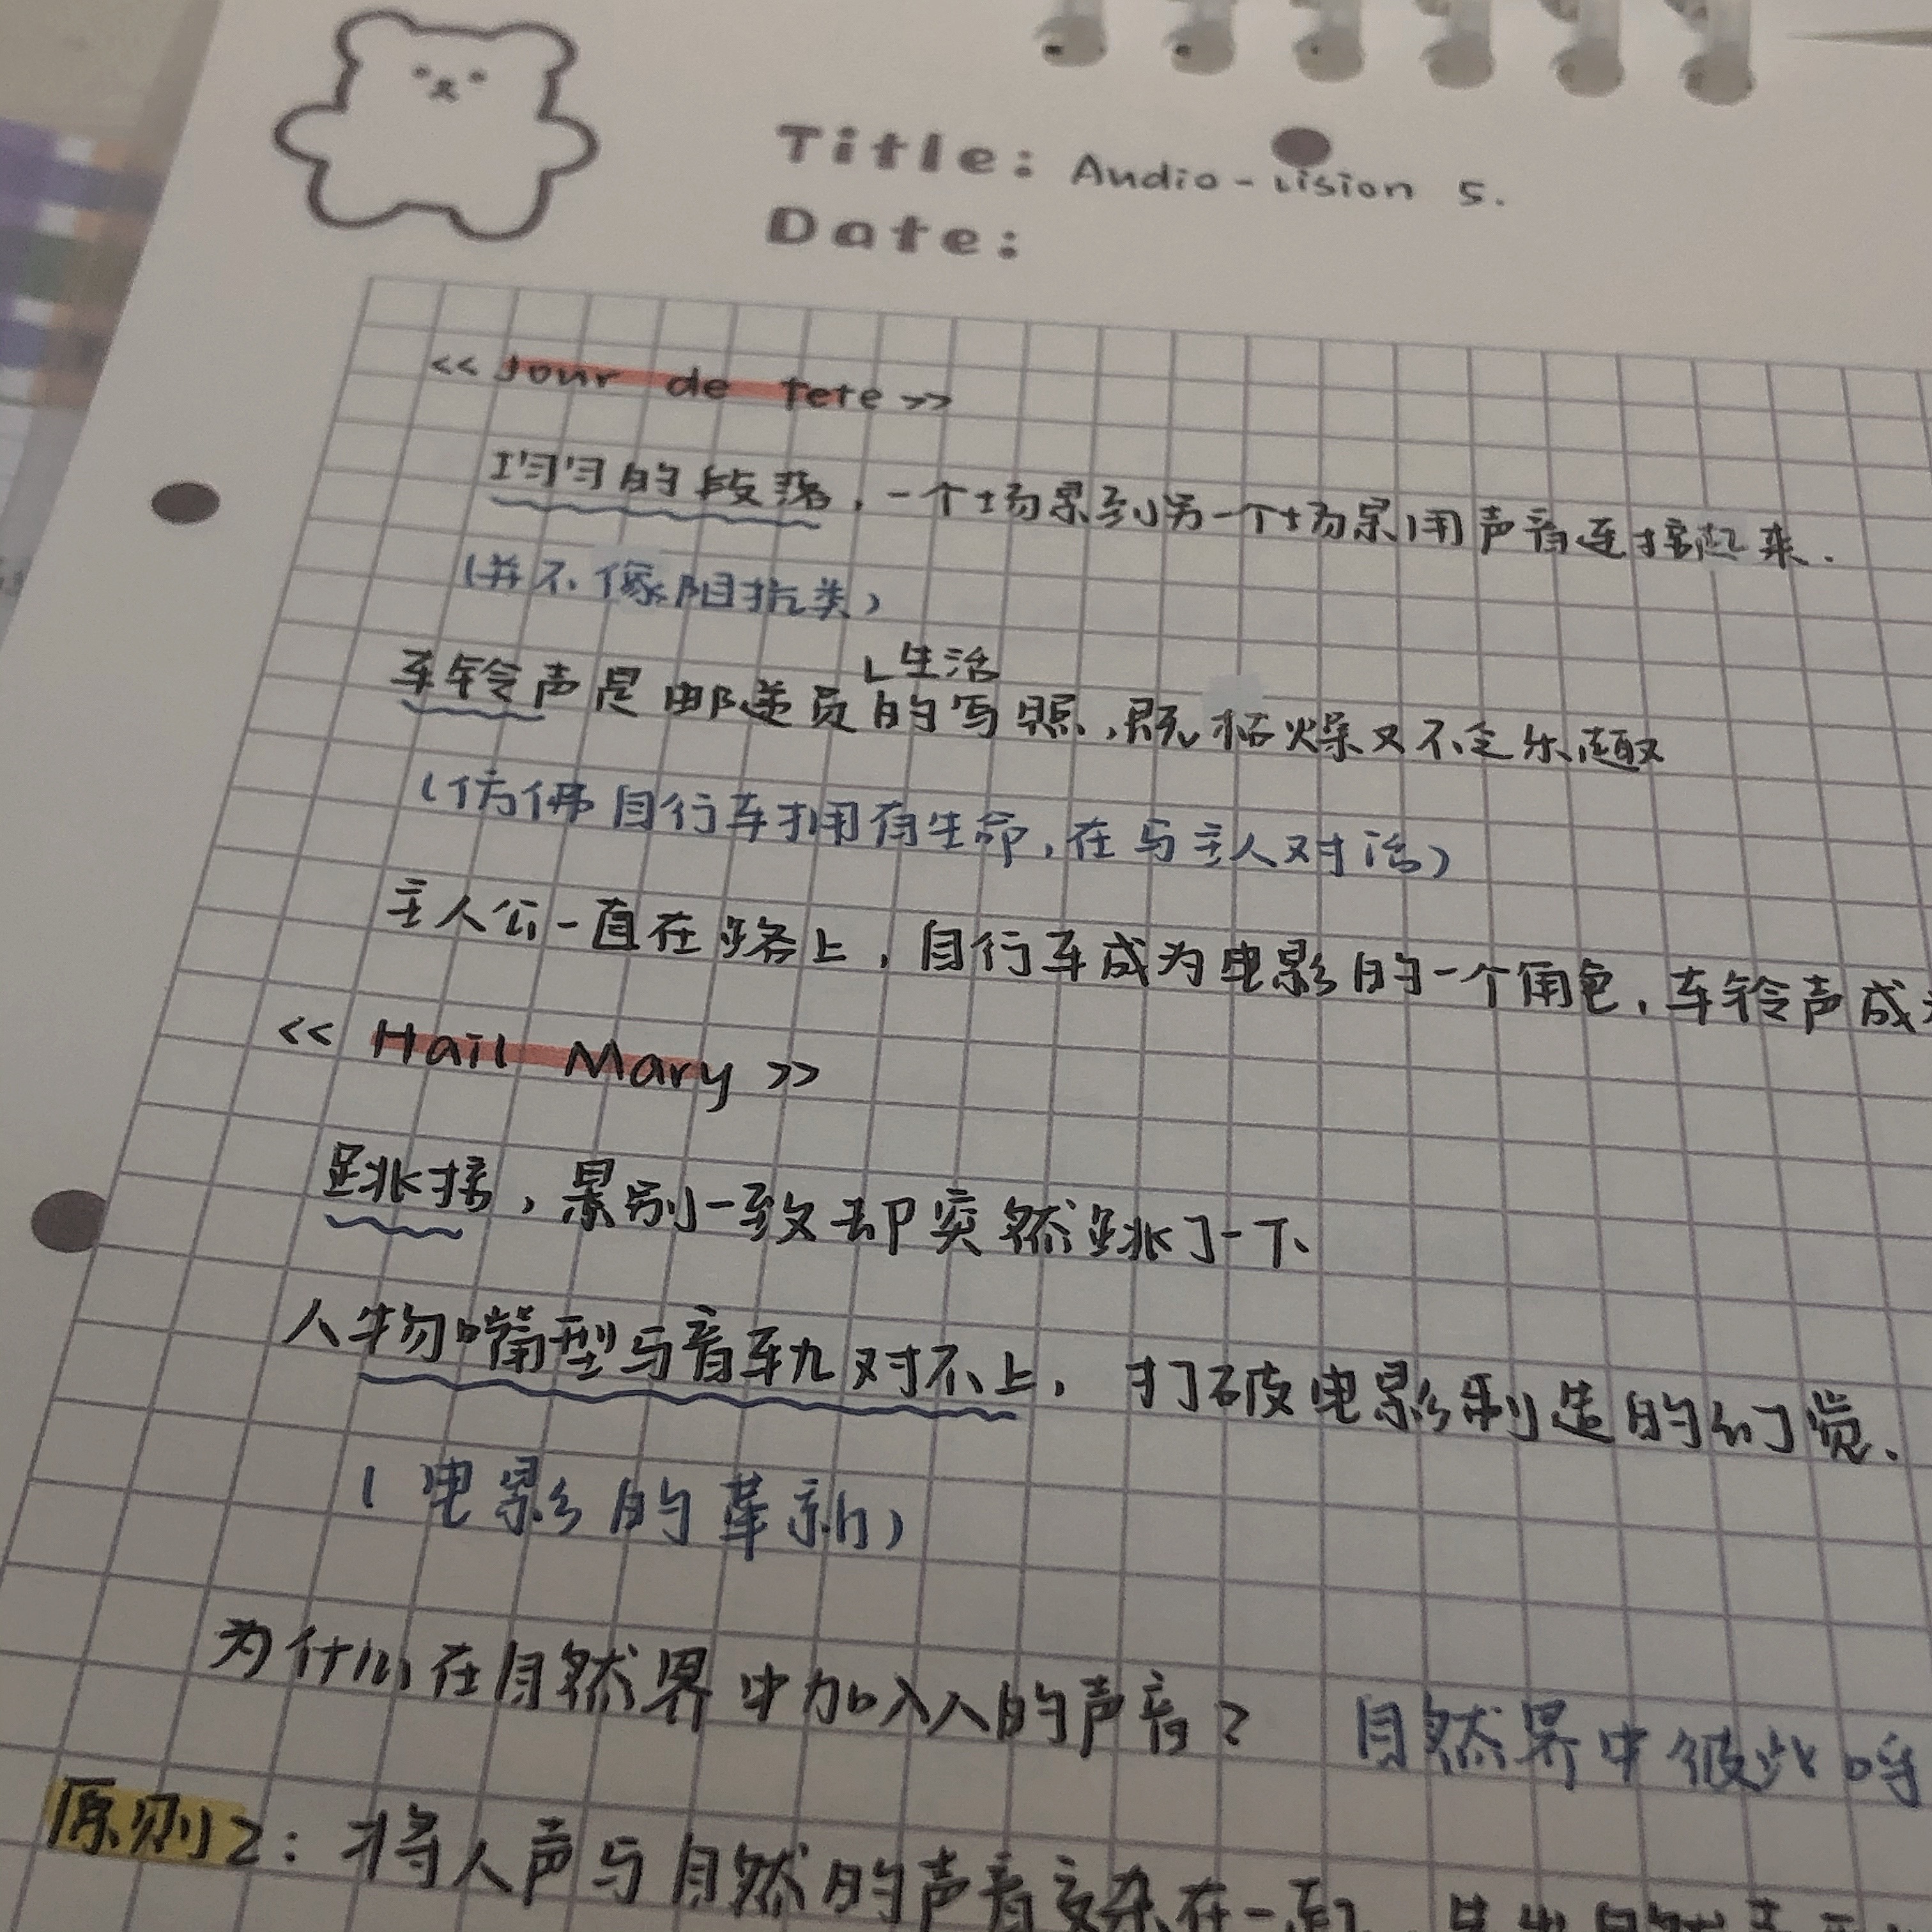 Title: Audio-vision 5.
Date:
<< Jour de fete >>
均匀的段落，一个场景到另一个场景用声音连接起来.
(并不像阻抗类)
生活
车铃声是邮递员的写照,既枯燥又不乏乐趣
(仿佛自行车拥有生命,在与主人对话)
主人公一直在路上,自行车成为电影的一个角色,车铃声成
<< Hail Mary >>
跳接,景别一致却突然跳了一下
人物嘴型与音轨对不上, 打破电影制造的幻觉.
(电影的革新)
为什么在自然界中加入人的声音? 自然界中彼此呼
原则2: 将人声与自然的声音交杂在一起